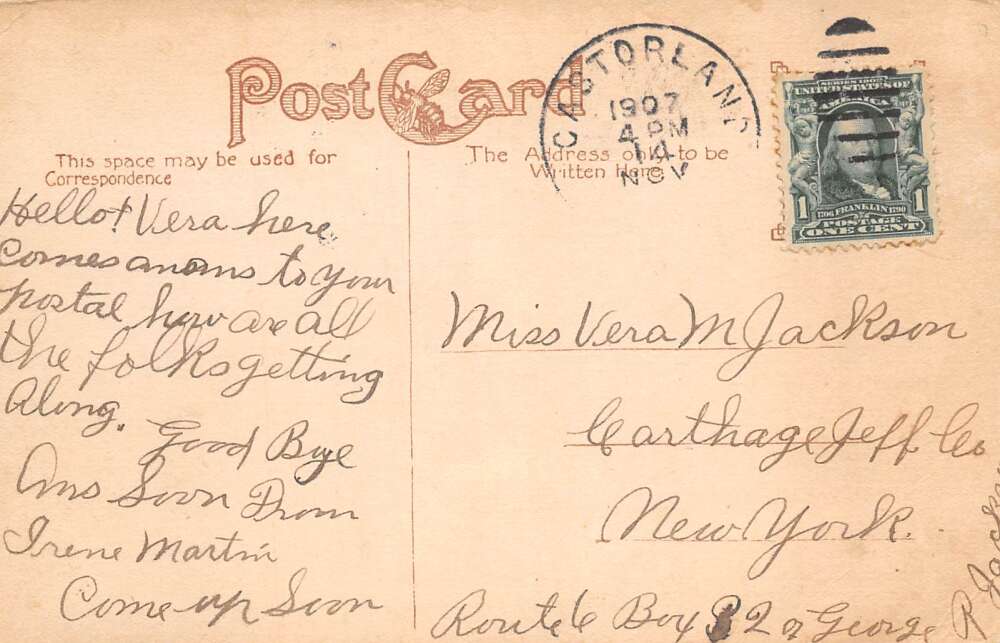 Post Card
This space may be used for
Correspondence
The Address only to be
Written Here
CASTORLAND
1907
4 PM
14
NOV
SERIES 1902
UNITED STATES OF
AMERICA
1 1
1706 FRANKLIN 1790
POSTAGE
ONE CENT
Hello! Vera here
Comes an ans to your
Postal how are all
the folks getting
Along.
Good Bye
Ans Soon From
Irene Martin
Come up Soon
Miss Vera M Jackson
Carthage Jeff Co
New York.
Route 6 Box 32
R